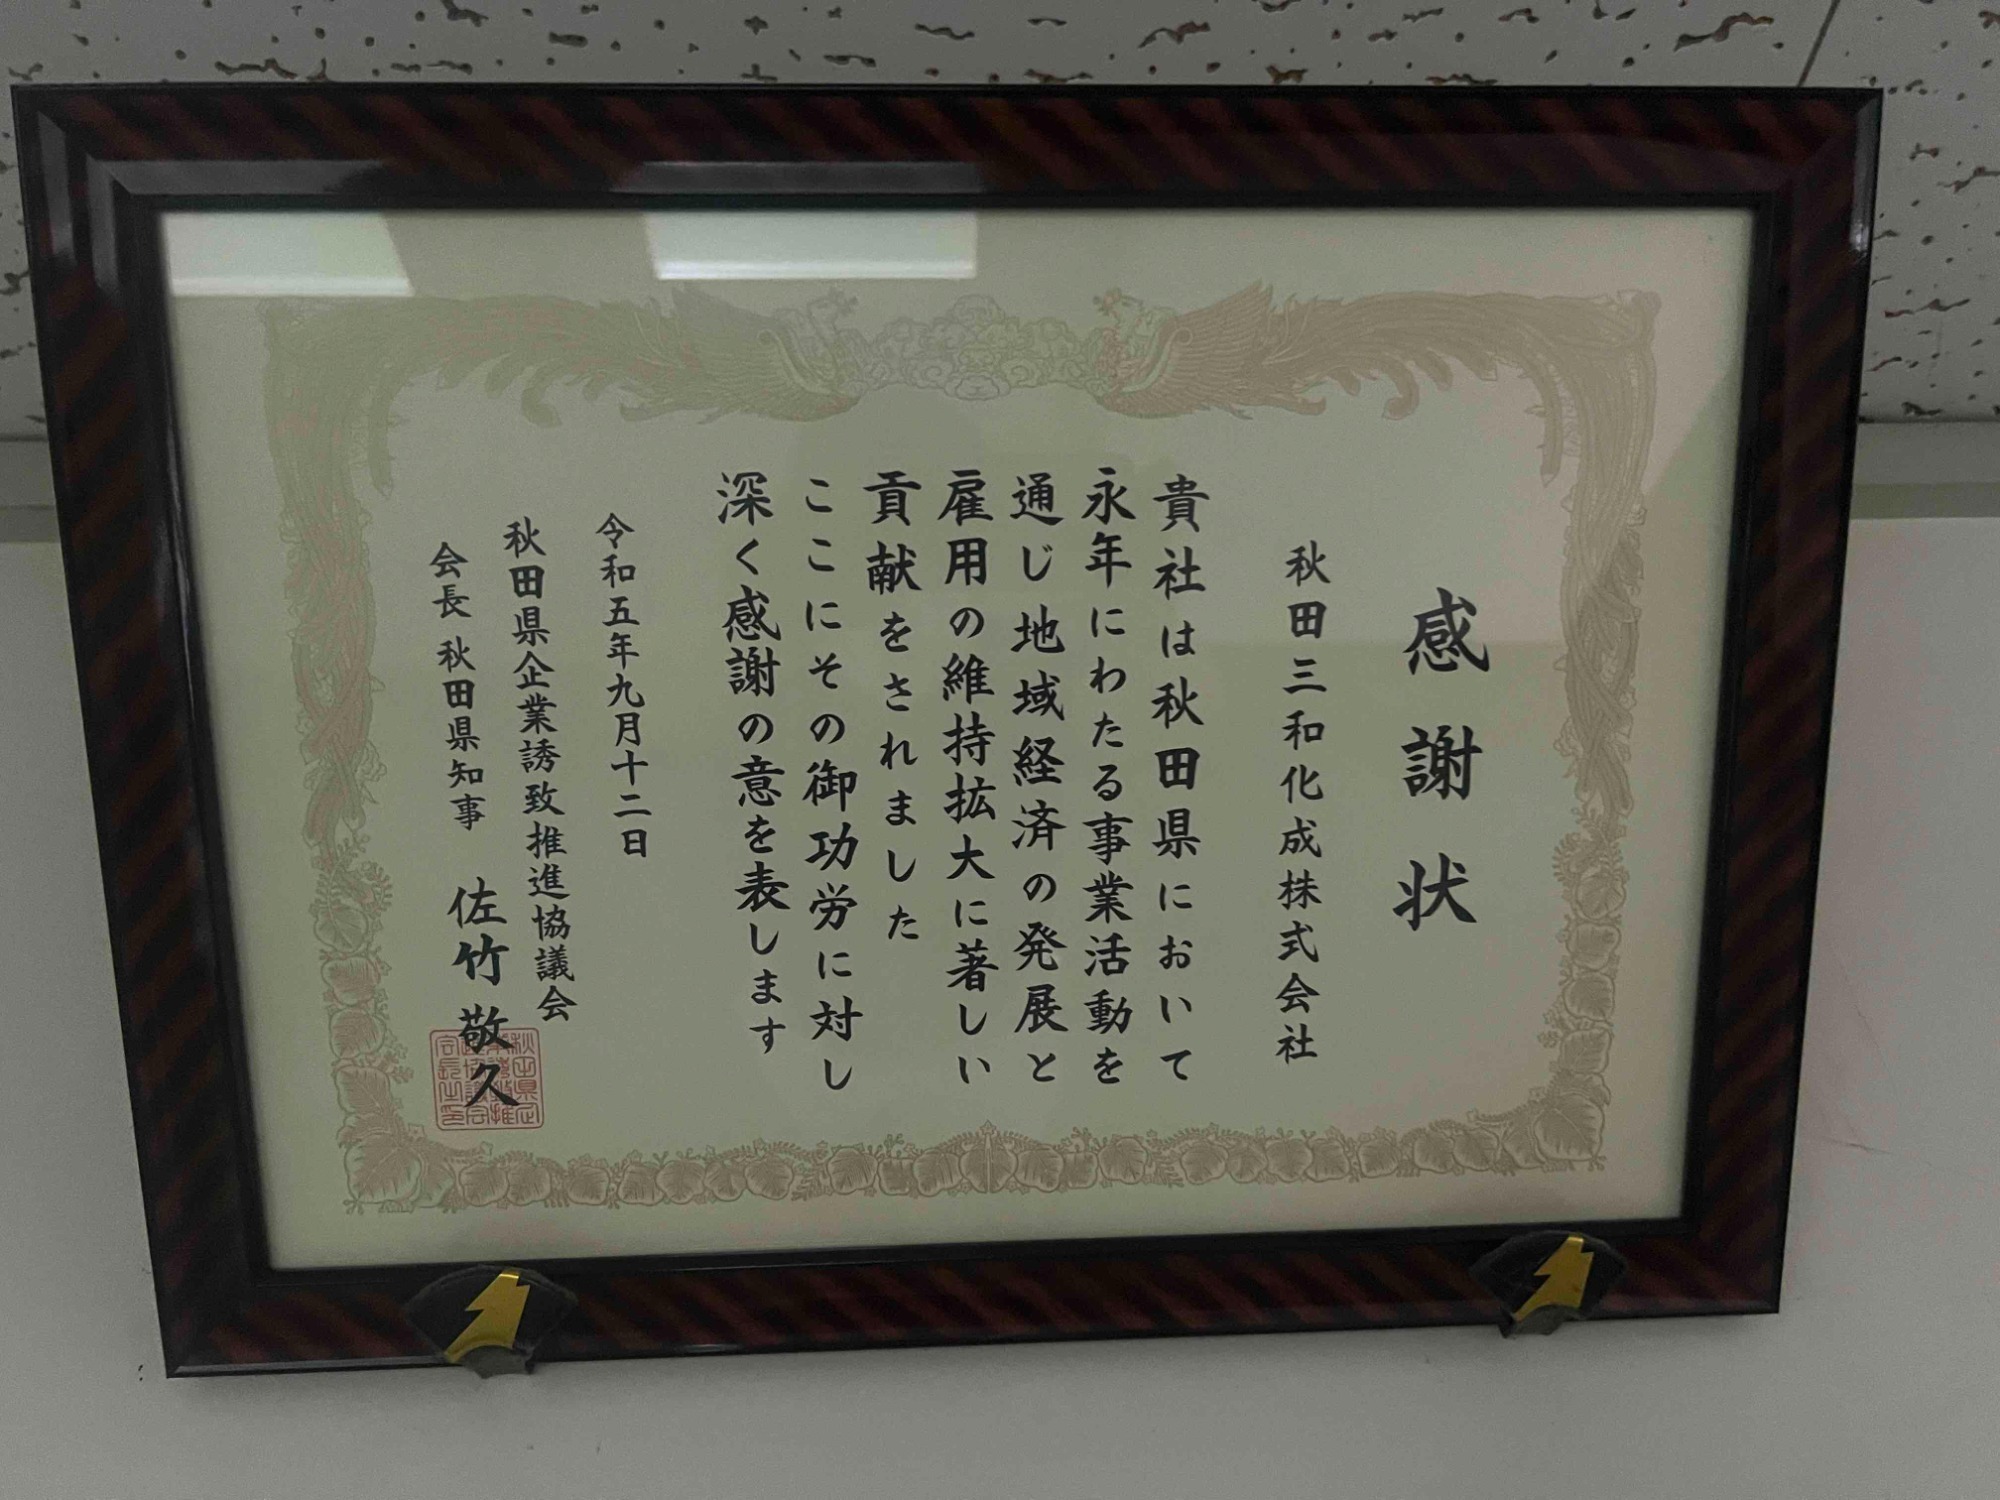 感謝状
秋田三和化成株式会社
貴社は秋田県において
永年にわたる事業活動を
通じ地域経済の発展と
雇用の維持拡大に著しい
貢献をされました
ここにその御功労に対し
深く感謝の意を表します
令和五年九月十二日
秋田県企業誘致推進協議会
会長 秋田県知事 佐竹敬久